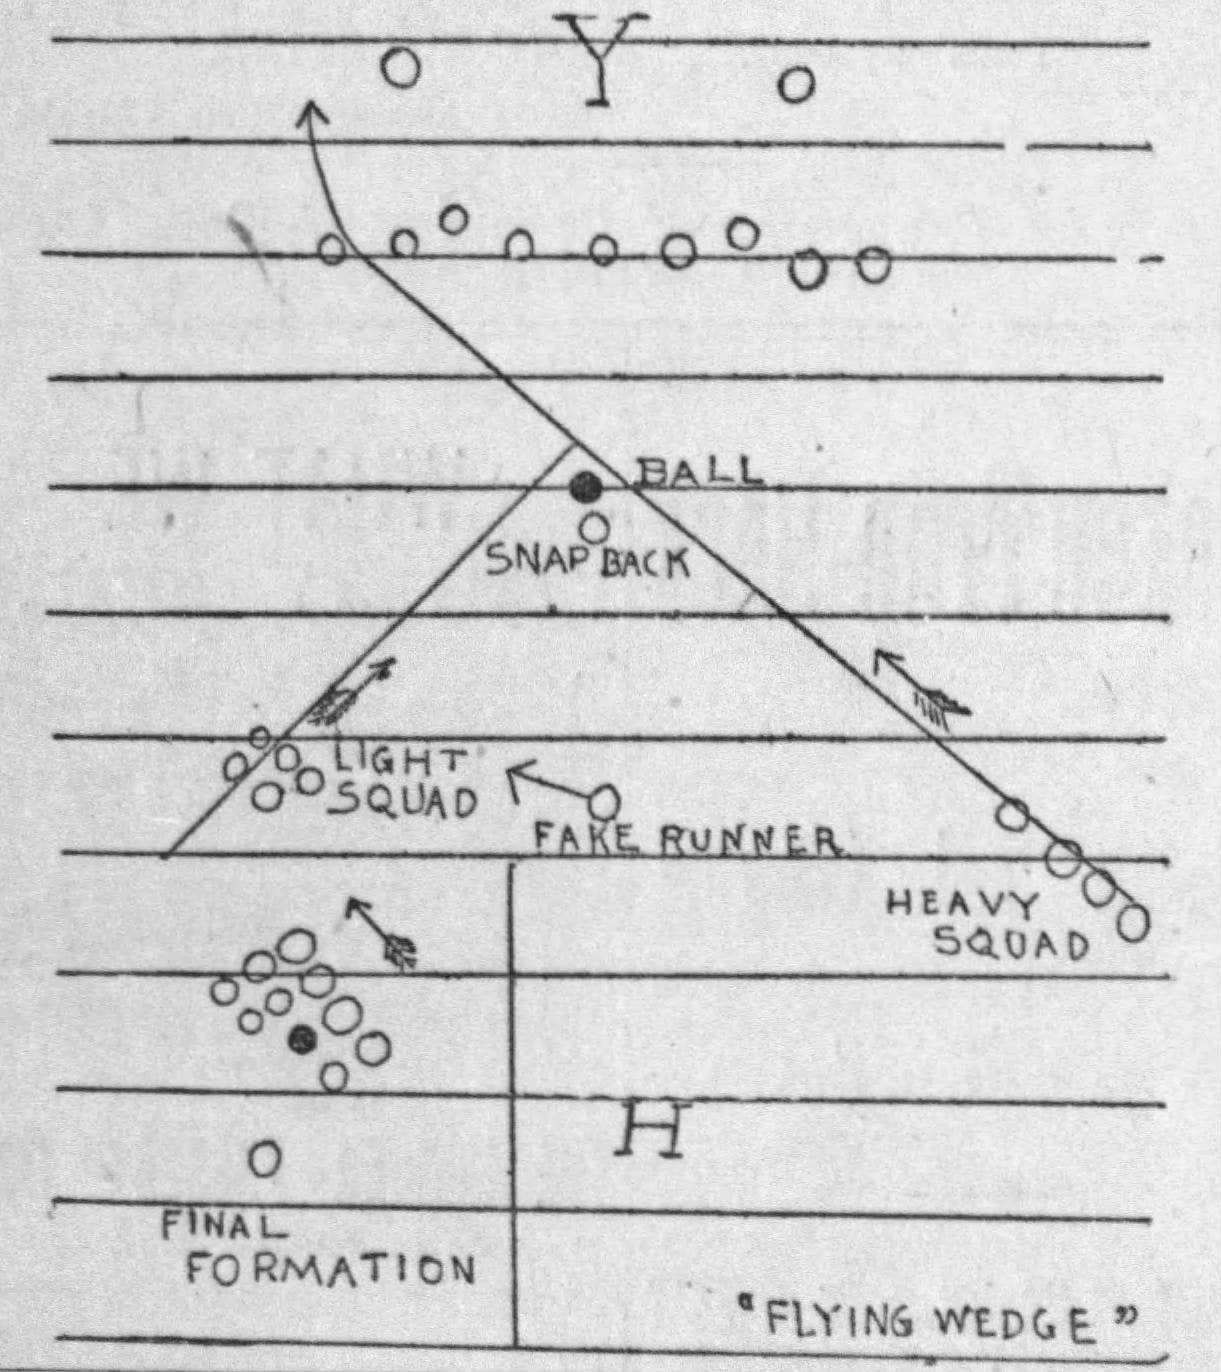 Y
BALL
SNAP BACK
LIGHT
SQUAD
FAKE RUNNER
HEAVY
SQUAD
H
FINAL
FORMATION
"FLYING WEDGE"